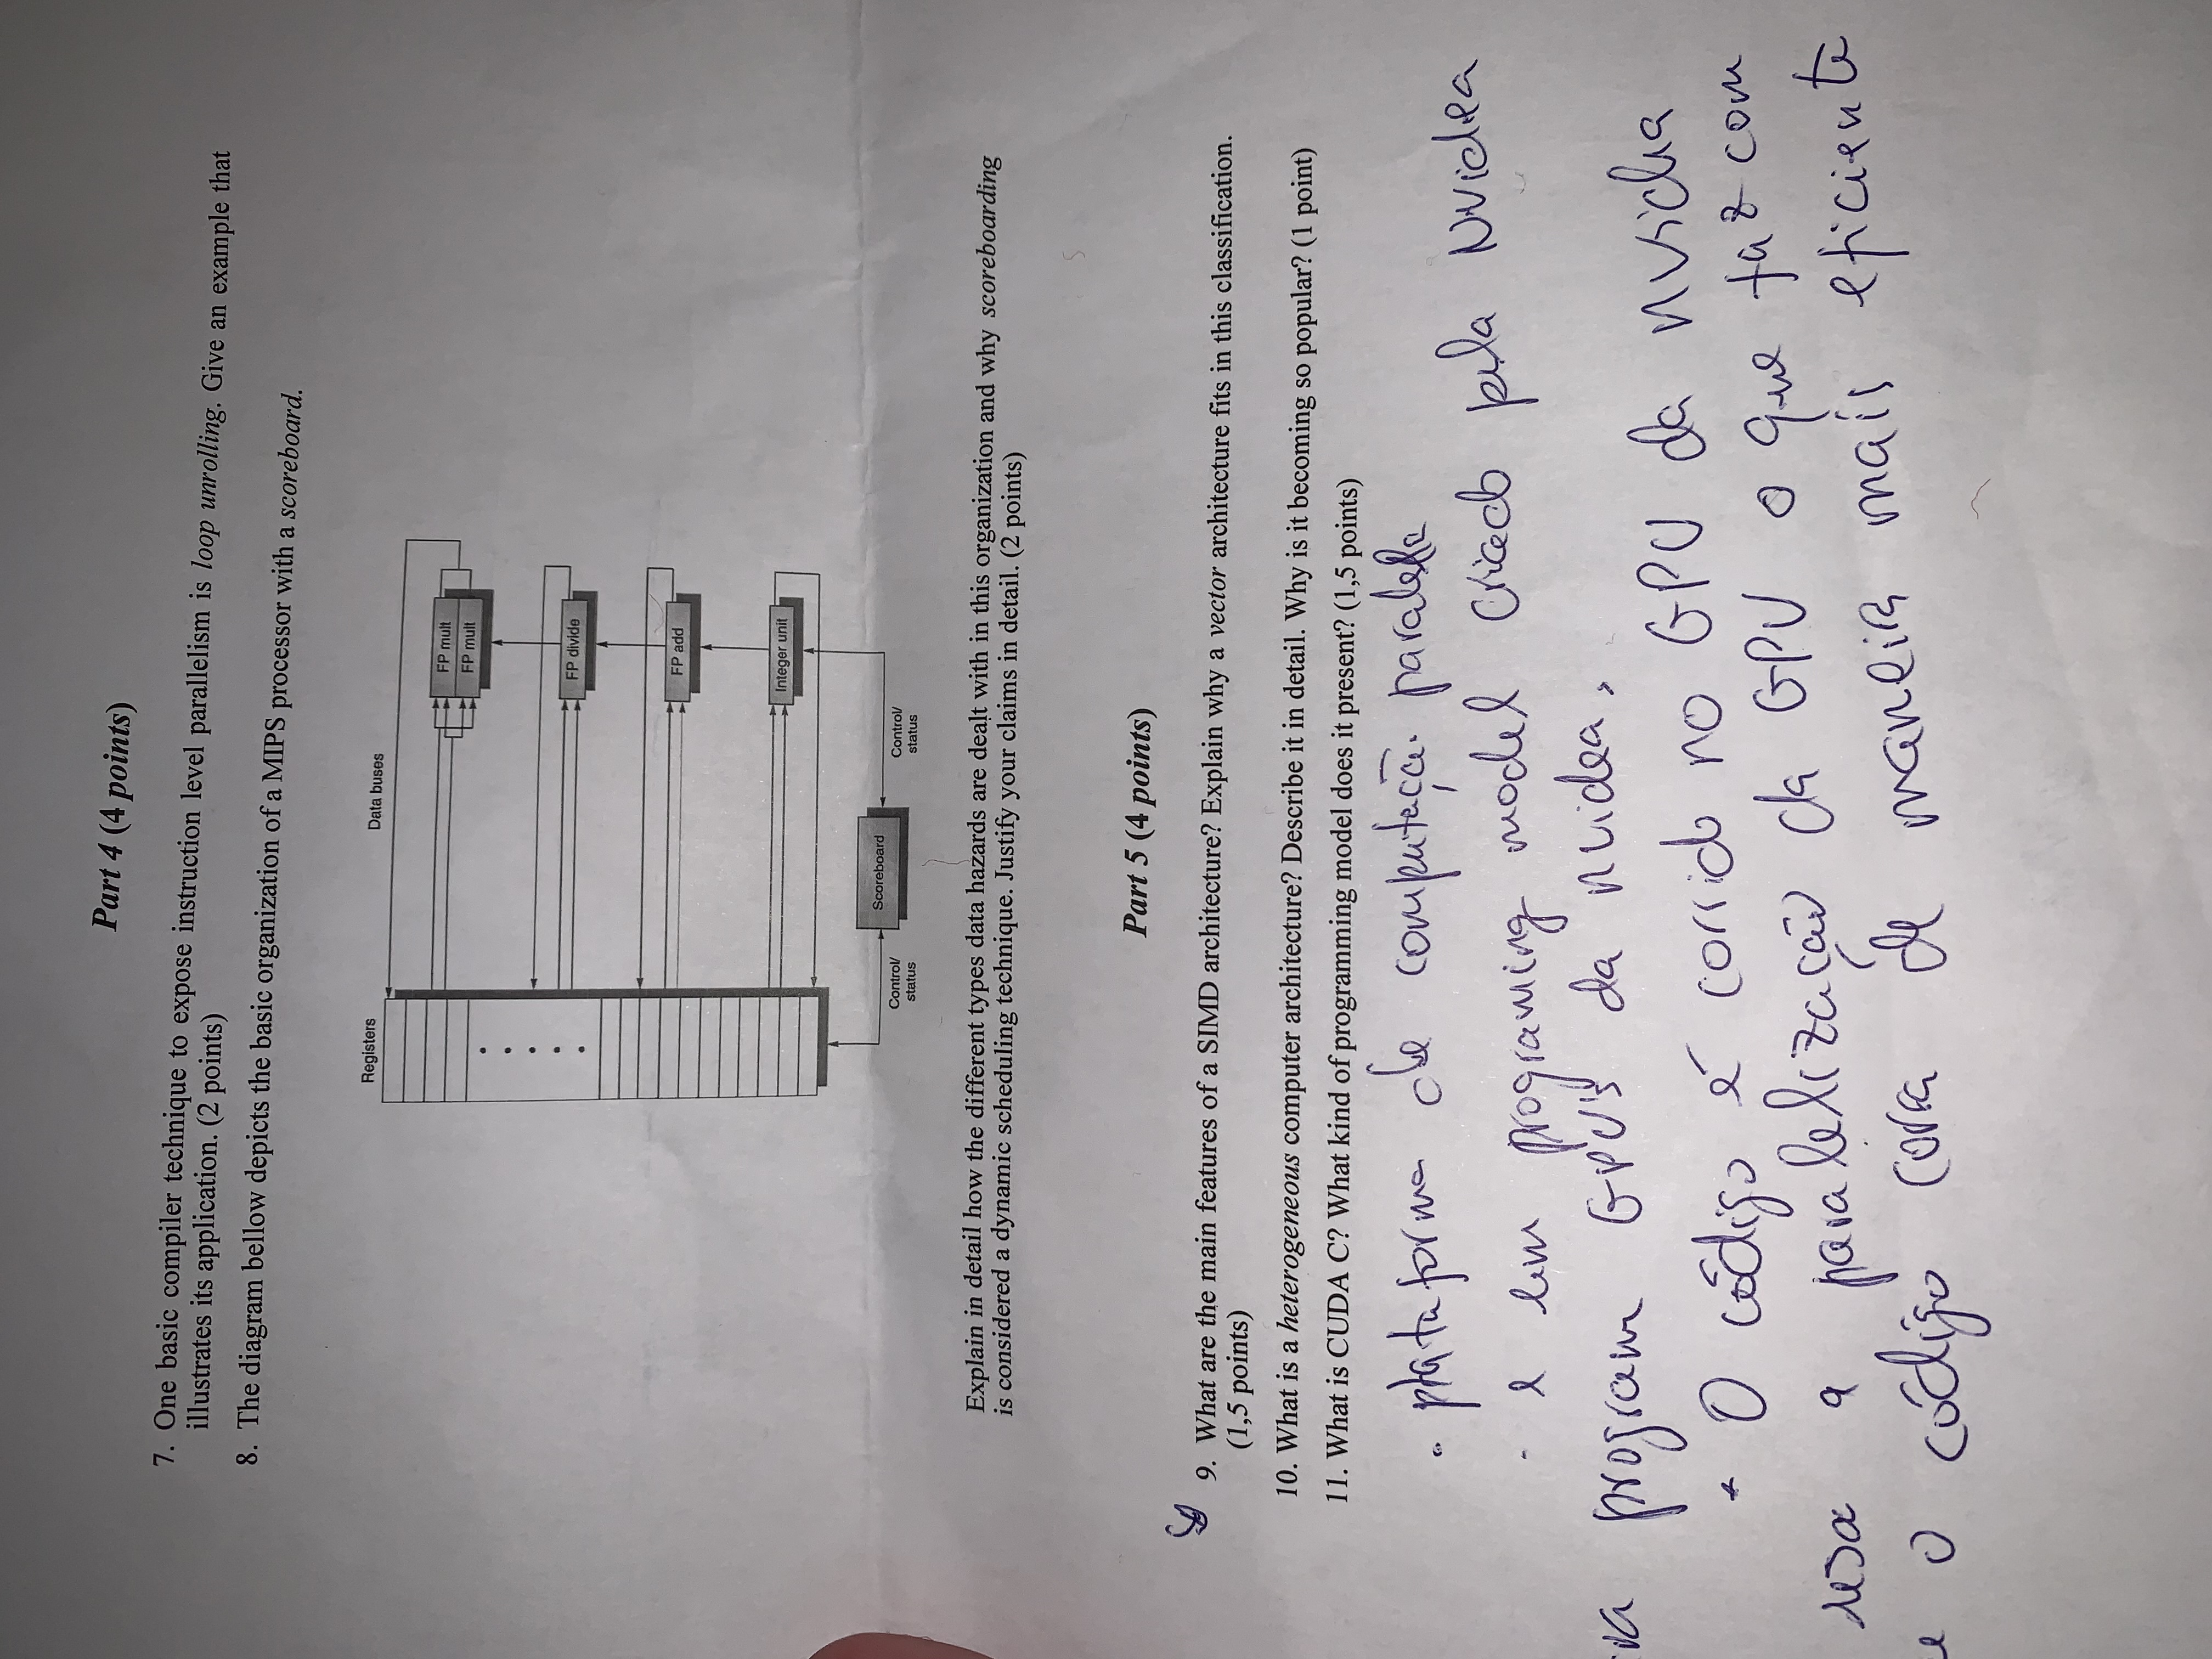 Part 4 (4 points)
7. One basic compiler technique to expose instruction level parallelism is loop unrolling. Give an example that
illustrates its application. (2 points)
8. The diagram bellow depicts the basic organization of a MIPS processor with a scoreboard.
Registers
Data buses
FP mult
FP mult
FP divide
FP add
Integer unit
Scoreboard
Control/
status
Control/
status
Explain in detail how the different types data hazards are dealt with in this organization and why scoreboarding
is considered a dynamic scheduling technique. Justify your claims in detail. (2 points)
Part 5 (4 points)
9. What are the main features of a SIMD architecture? Explain why a vector architecture fits in this classification.
(1,5 points)
10. What is a heterogeneous computer architecture? Describe it in detail. Why is it becoming so popular? (1 point)
11. What is CUDA C? What kind of programming model does it present? (1,5 points)
• plataforma de computação paralela
- e um programing model criado pela Nvidea
program GPU's da nvidea.
• O código é corrido no GPU da nvidia
usa a paralelização da GPU o que faz com
o código corra de maneira mais eficiente